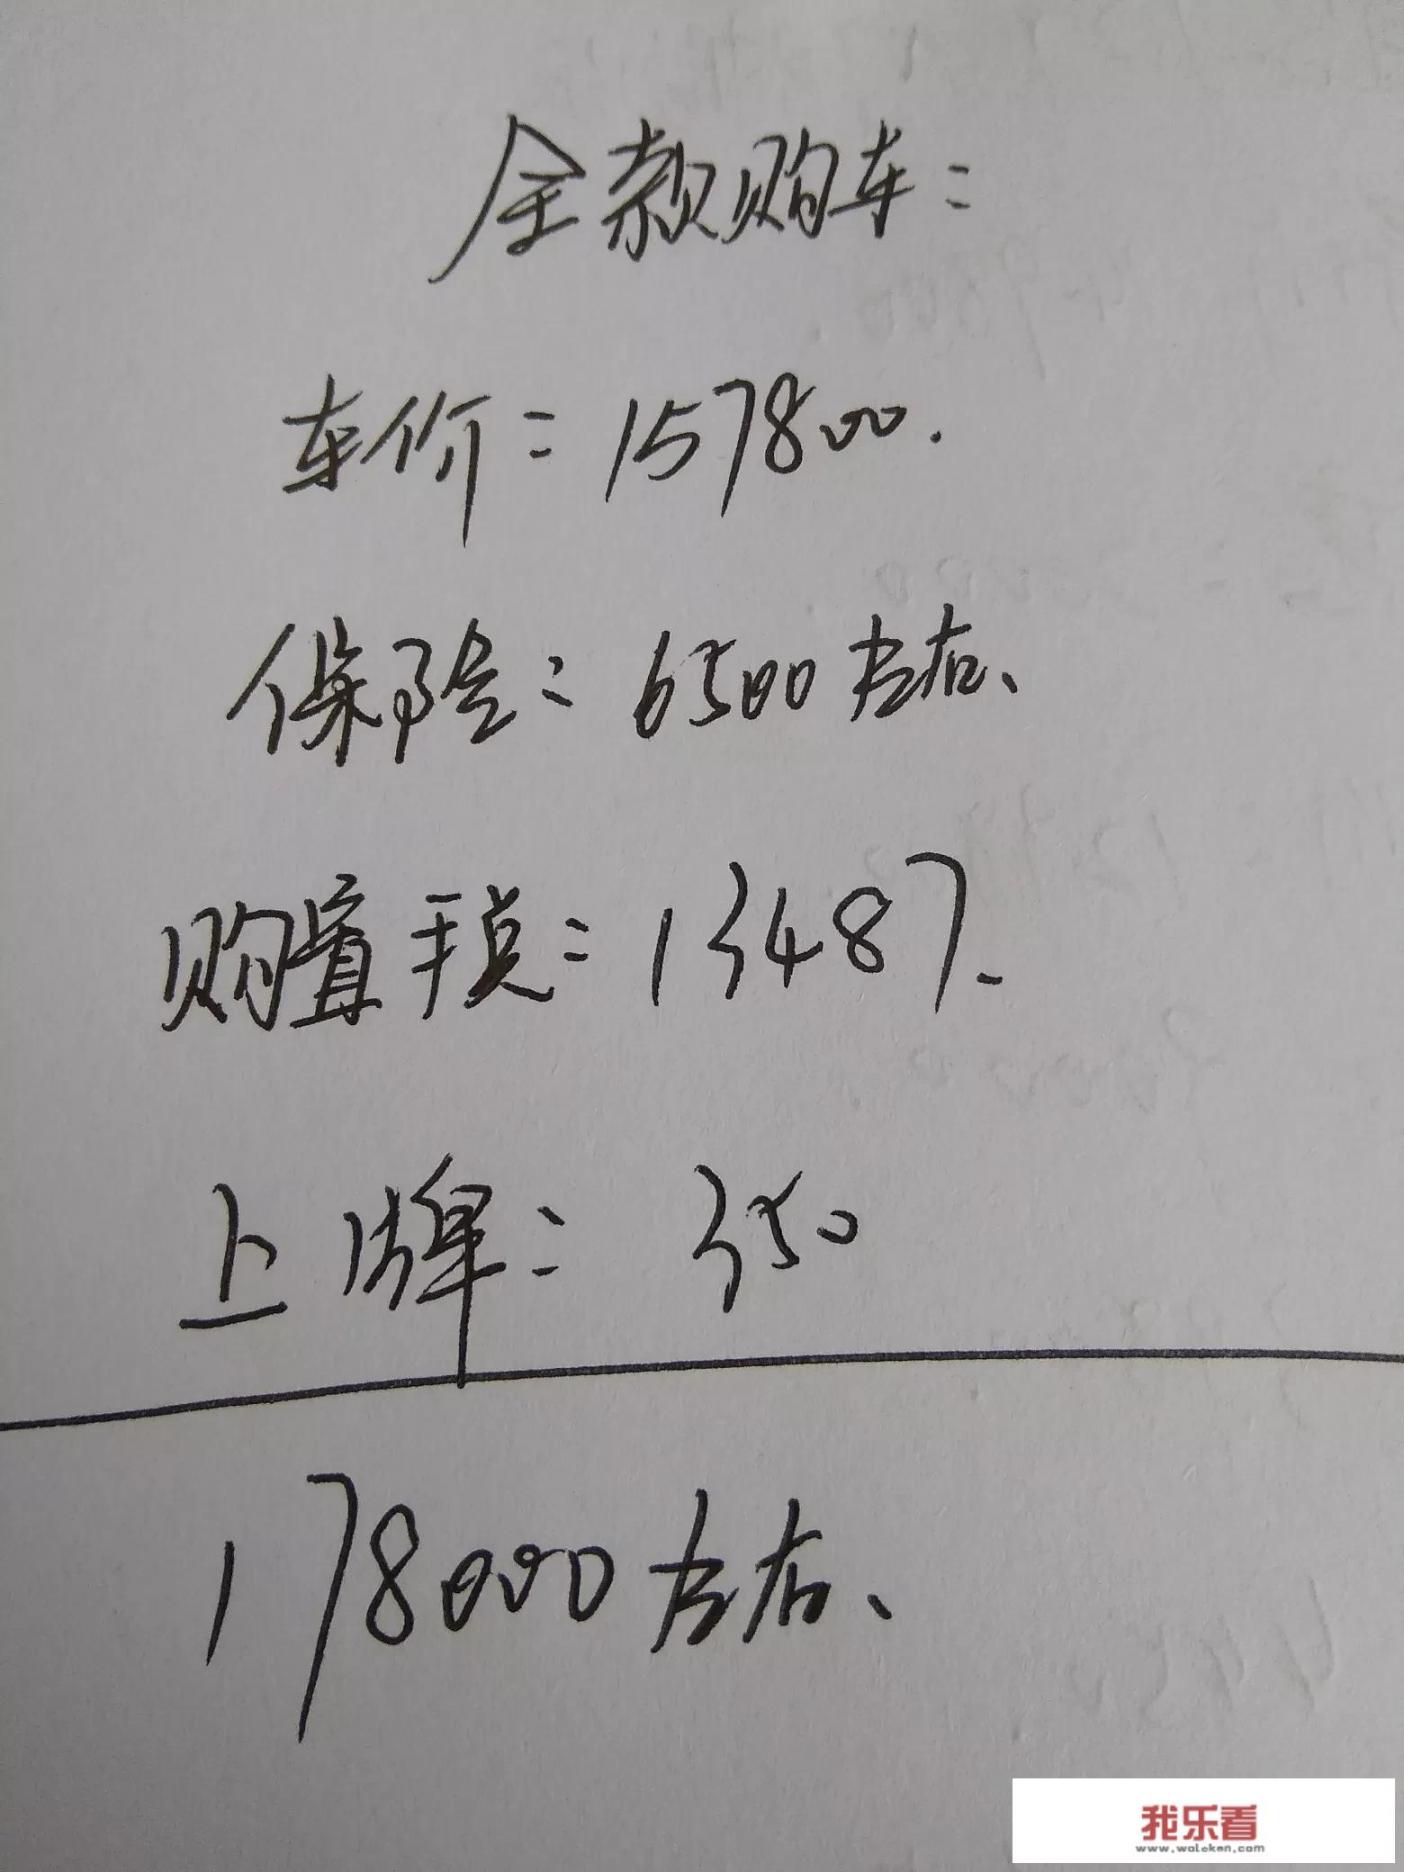 全款购车:
车价:157800.
保险:6500左右、
购置税:13487.
上牌:350
178000左右、
我乐看
www.woleken.com